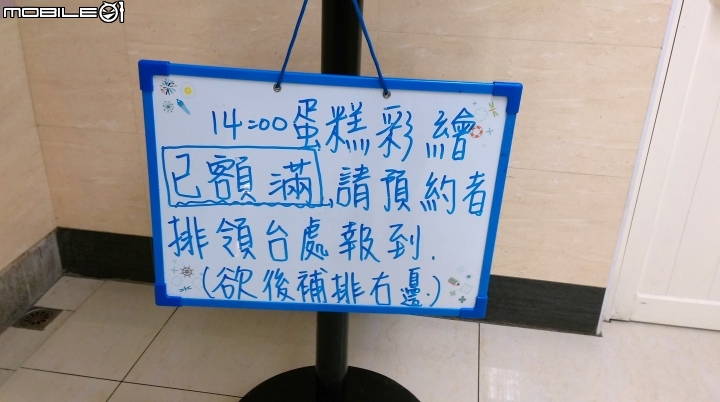 MOBILE01
14:00蛋糕彩繪
已額滿,請預約者
排領台處報到.
(欲後補排右邊.)